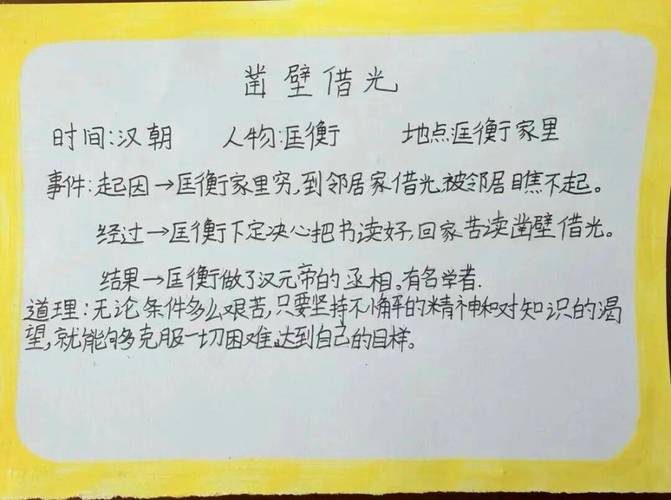 凿壁借光
时间:汉朝 人物:匡衡 地点:匡衡家里
事件:起因→匡衡家里穷,到邻居家借光,被邻居瞧不起。
经过→匡衡下定决心把书读好,回家苦读凿壁借光。
结果→匡衡做了汉元帝的丞相。有名学者.
道理:无论条件多么艰苦,只要坚持不懈的精神和对知识的渴
望,就能够多克服一切困难,达到自己的目样。